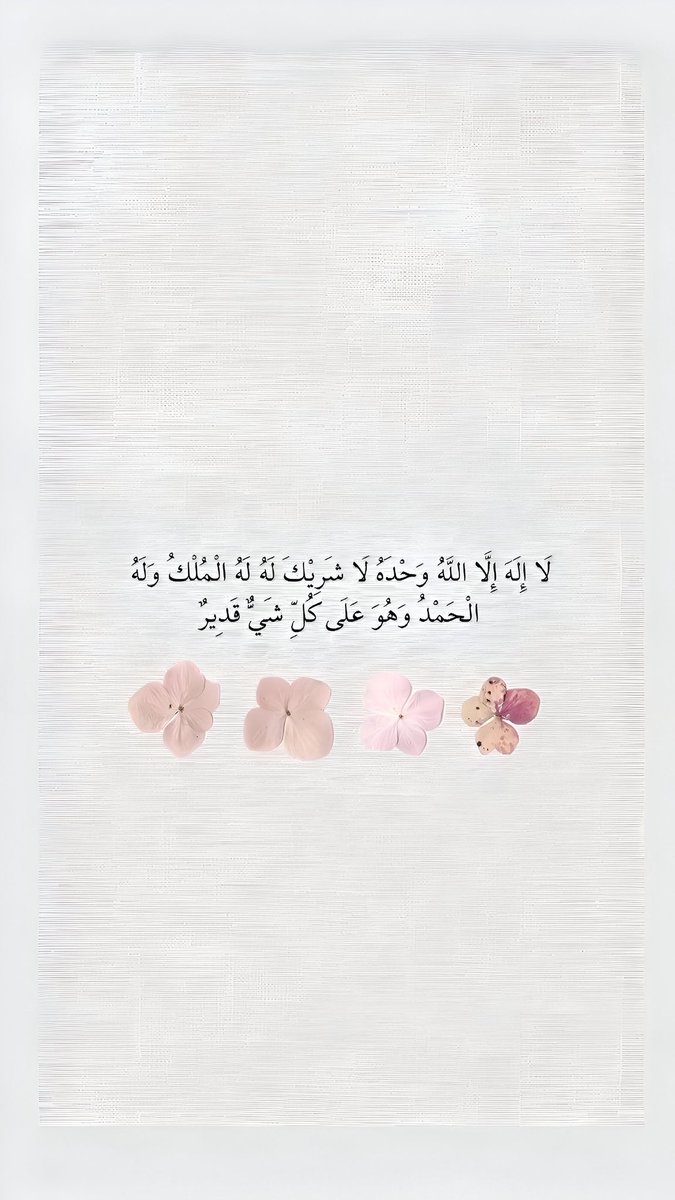 لَا إِلَهَ إِلَّا اللَّهُ وَحْدَهُ لَا شَرِيْكَ لَهُ لَهُ الْمُلْكُ وَلَهُ
الْحَمْدُ وَهُوَ عَلَى كُلِّ شَيٌّ قَدِيرٌ